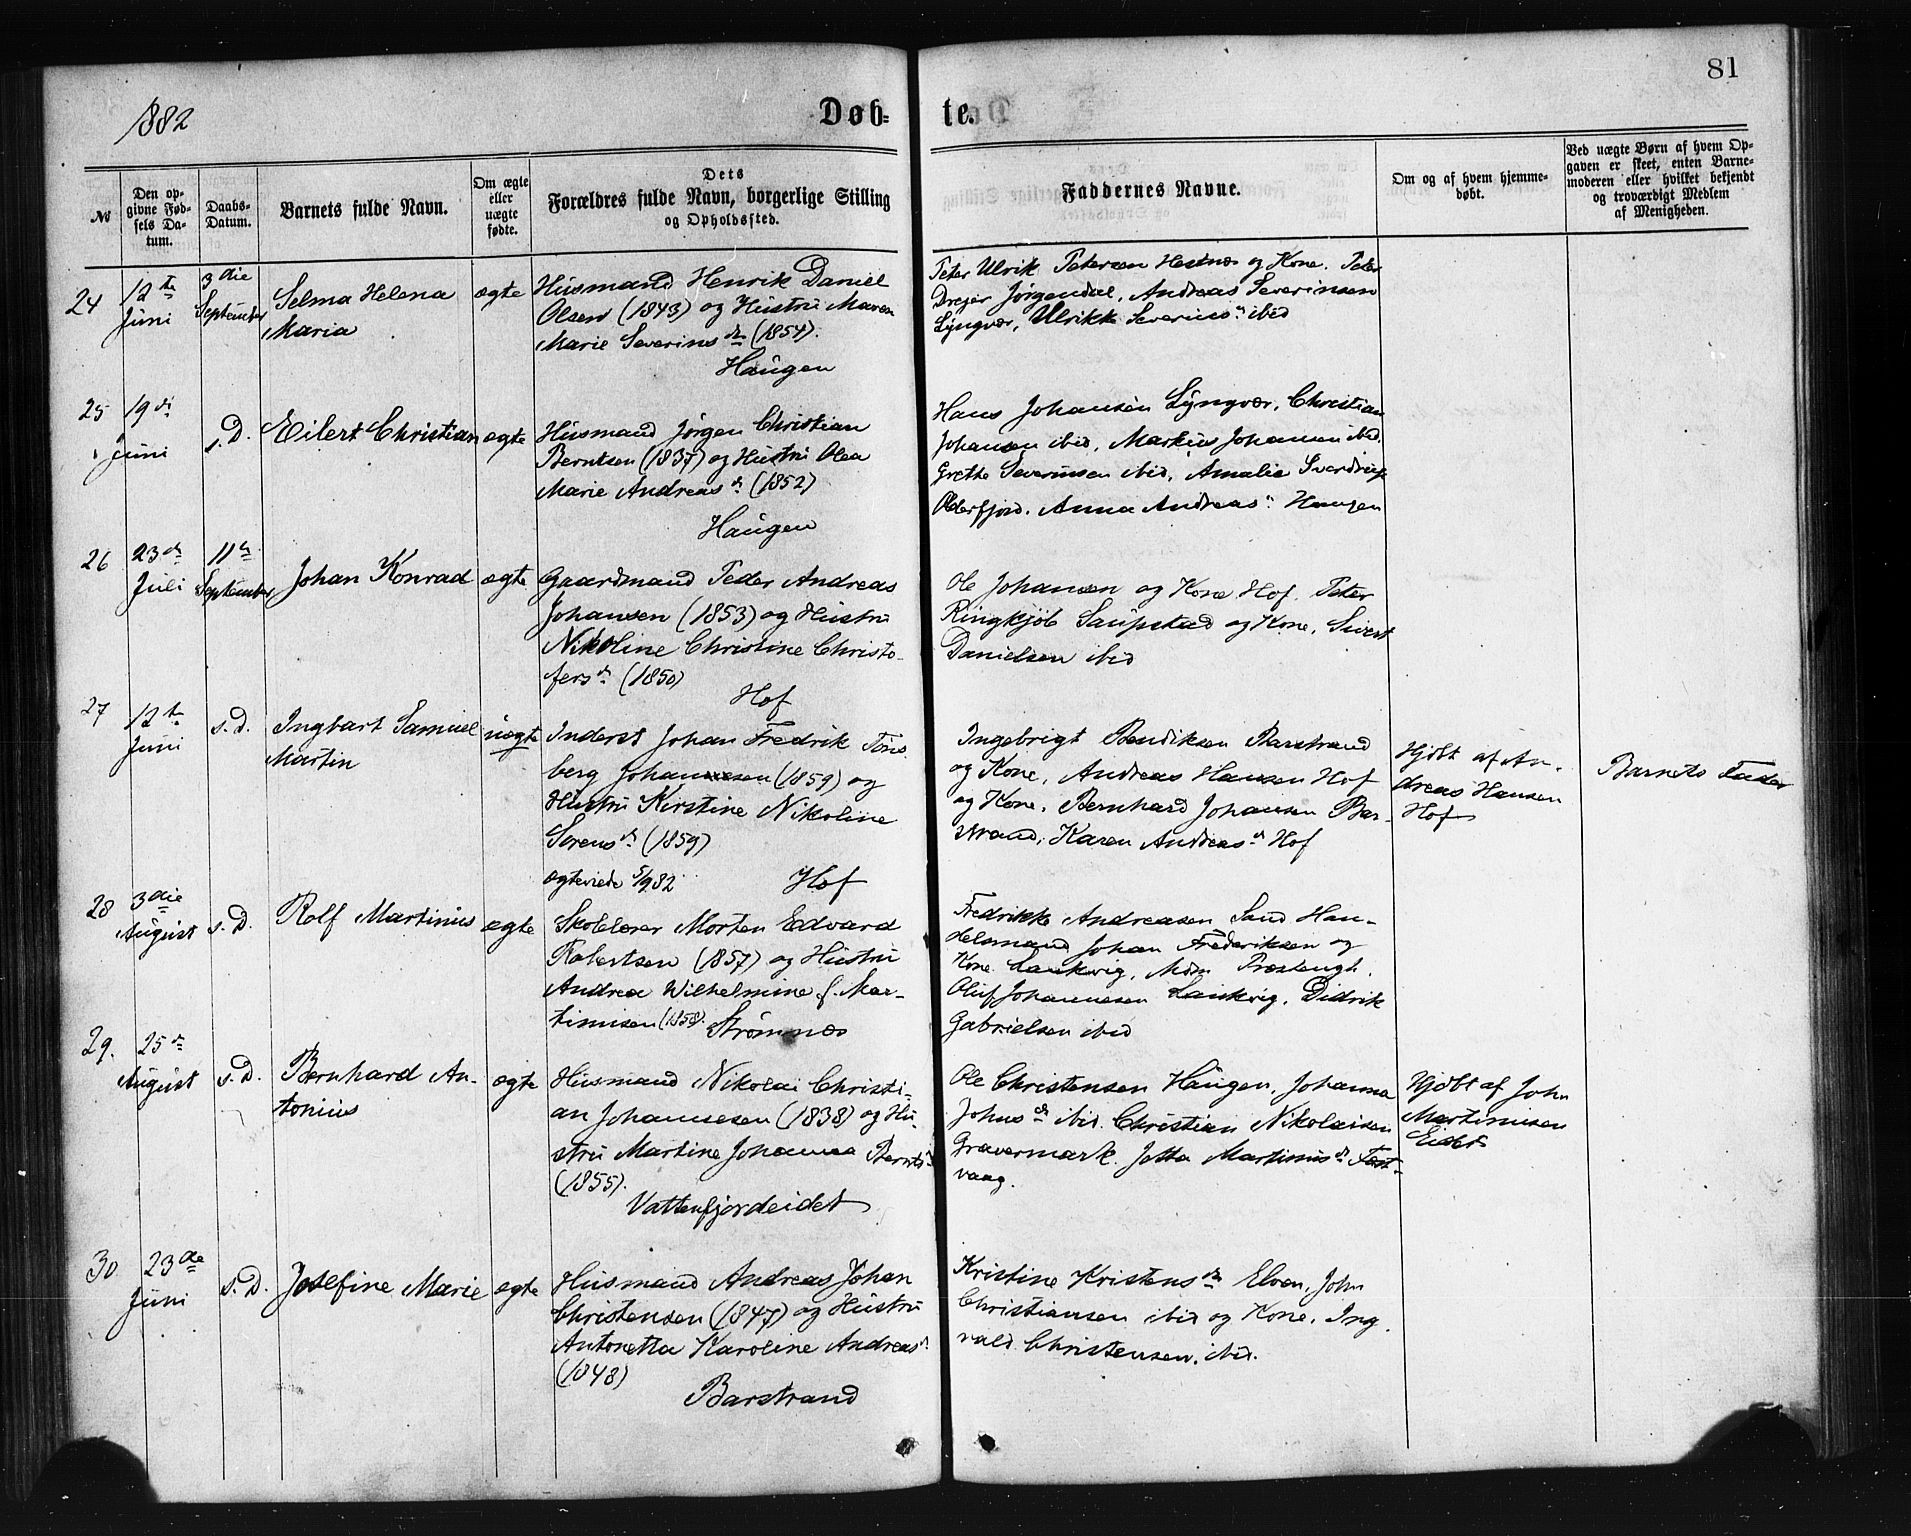 81
1882
Døb-
te.
№
Den op-
givne Fød-
sels Da-
tum.
Daabs-
Datum.
Barnets fulde Navn.
Om ægte
eller
uægte
fødte.
Dets
Forældres fulde Navn, borgerlige Stilling
og Opholdssted.
Faddernes Navne.
Om og af hvem hjemme-
døbt.
Ved uægte Børn af hvem Op-
gaven er skeet, enten Barne-
moderen eller hvilket bekjendt
og troværdigt Medlem
af Menigheden.
24
12te
Juni
3die
September
Selma Helena
Maria
ægte
Husmand Henrik Daniel
Olsen (1843) og Hustru Maren
Marie Severinsdr (1854).
Haugen
Peter Ulrik Petersen Hestnæs og Kone. Peter
Drejer Jørgendal, Andreas Severinsen
Lyngvær, Ulrikke Severins" ibid
25
19de
Juni
s.D.
Eilert Christian
ægte
Husmand Jørgen Christian
Berntsen (1837) og Hustru Olea
Marie Andreasd (1852)
Haugen
Hans Johansen Lyngvær, Christian
Johansen ibid, Markus Johansen ibid.
Grethe Severinsen ibid, Amalie Sverdrup
Olderfjord. Anna Andreas" Haugen
26
23de
Juli
11te
September
Johan Konrad
ægte
Gaardmand Peder Andreas
Johansen (1853) og Hustru
Nikoline Christine Christo-
fersd (1850)
Hof
Ole Johansen og Kone Hof. Peter
Ringkjøb Saupstad og Kone, Sivert
Danielsen ibid
27
12te
Juni
s.D.
Ingbart Samuel
Martin
uægte
Inderst Johan Fredrik Tøns
berg Johannesen (1859) og
Hustru Kirstine Nikoline
Sørensd (1859)
ægteviede 5/9 82
Hof
Ingebrigt Bendiksen Barstrand
og Kone, Andreas Hansen Hof
og Kone, Bernhard Johansen Bar-
strand, Karen Andreasd Hof
Hjdbt af An-
dreas Hansen
Hof
Barnets Fader
28
3die
August
s.D.
Rolf Martinus
ægte
Skolelærer Morten Edvard
Robertsen (1857) og Hustru
Andrea Wilhelmine f. Mar-
tinisen (1858).
Strømnæs
Fredrikke Andreasen Sund Han-
delsmand Johan Frederiksen og
Kone Laukvig, Mdm Præstengt.
Oluf Johannesen Laukvig, Didrik
Gabrielsen ibid
29.
25de
August
s.D.
Bernhard An-
tonius
ægte
Husmand Nikolai Christi-
an Johannesen (1838) og Hu-
stru Martine Johanna Bernts"
(1855).
Vattenfjordeidet
Ole Christensen Haugen, Johanna
Johnsd ibid. Christian Nikolaisen
Gravermark. Jetta Martinusd Fæst-
vaag.
Hjdbt af John
Martinisen
Eidet
30
23de
Juni
s.D.
Josefine Marie
ægte
Husmand Andreas Johan
Christensen (1847) og Hustru
Antonetta Karoline Andreasd
(1848)
Barstrand
Kristine Kristensdr Elven, John
Christiansen ibid og Kone, Ing
vald Christensen, ibid.